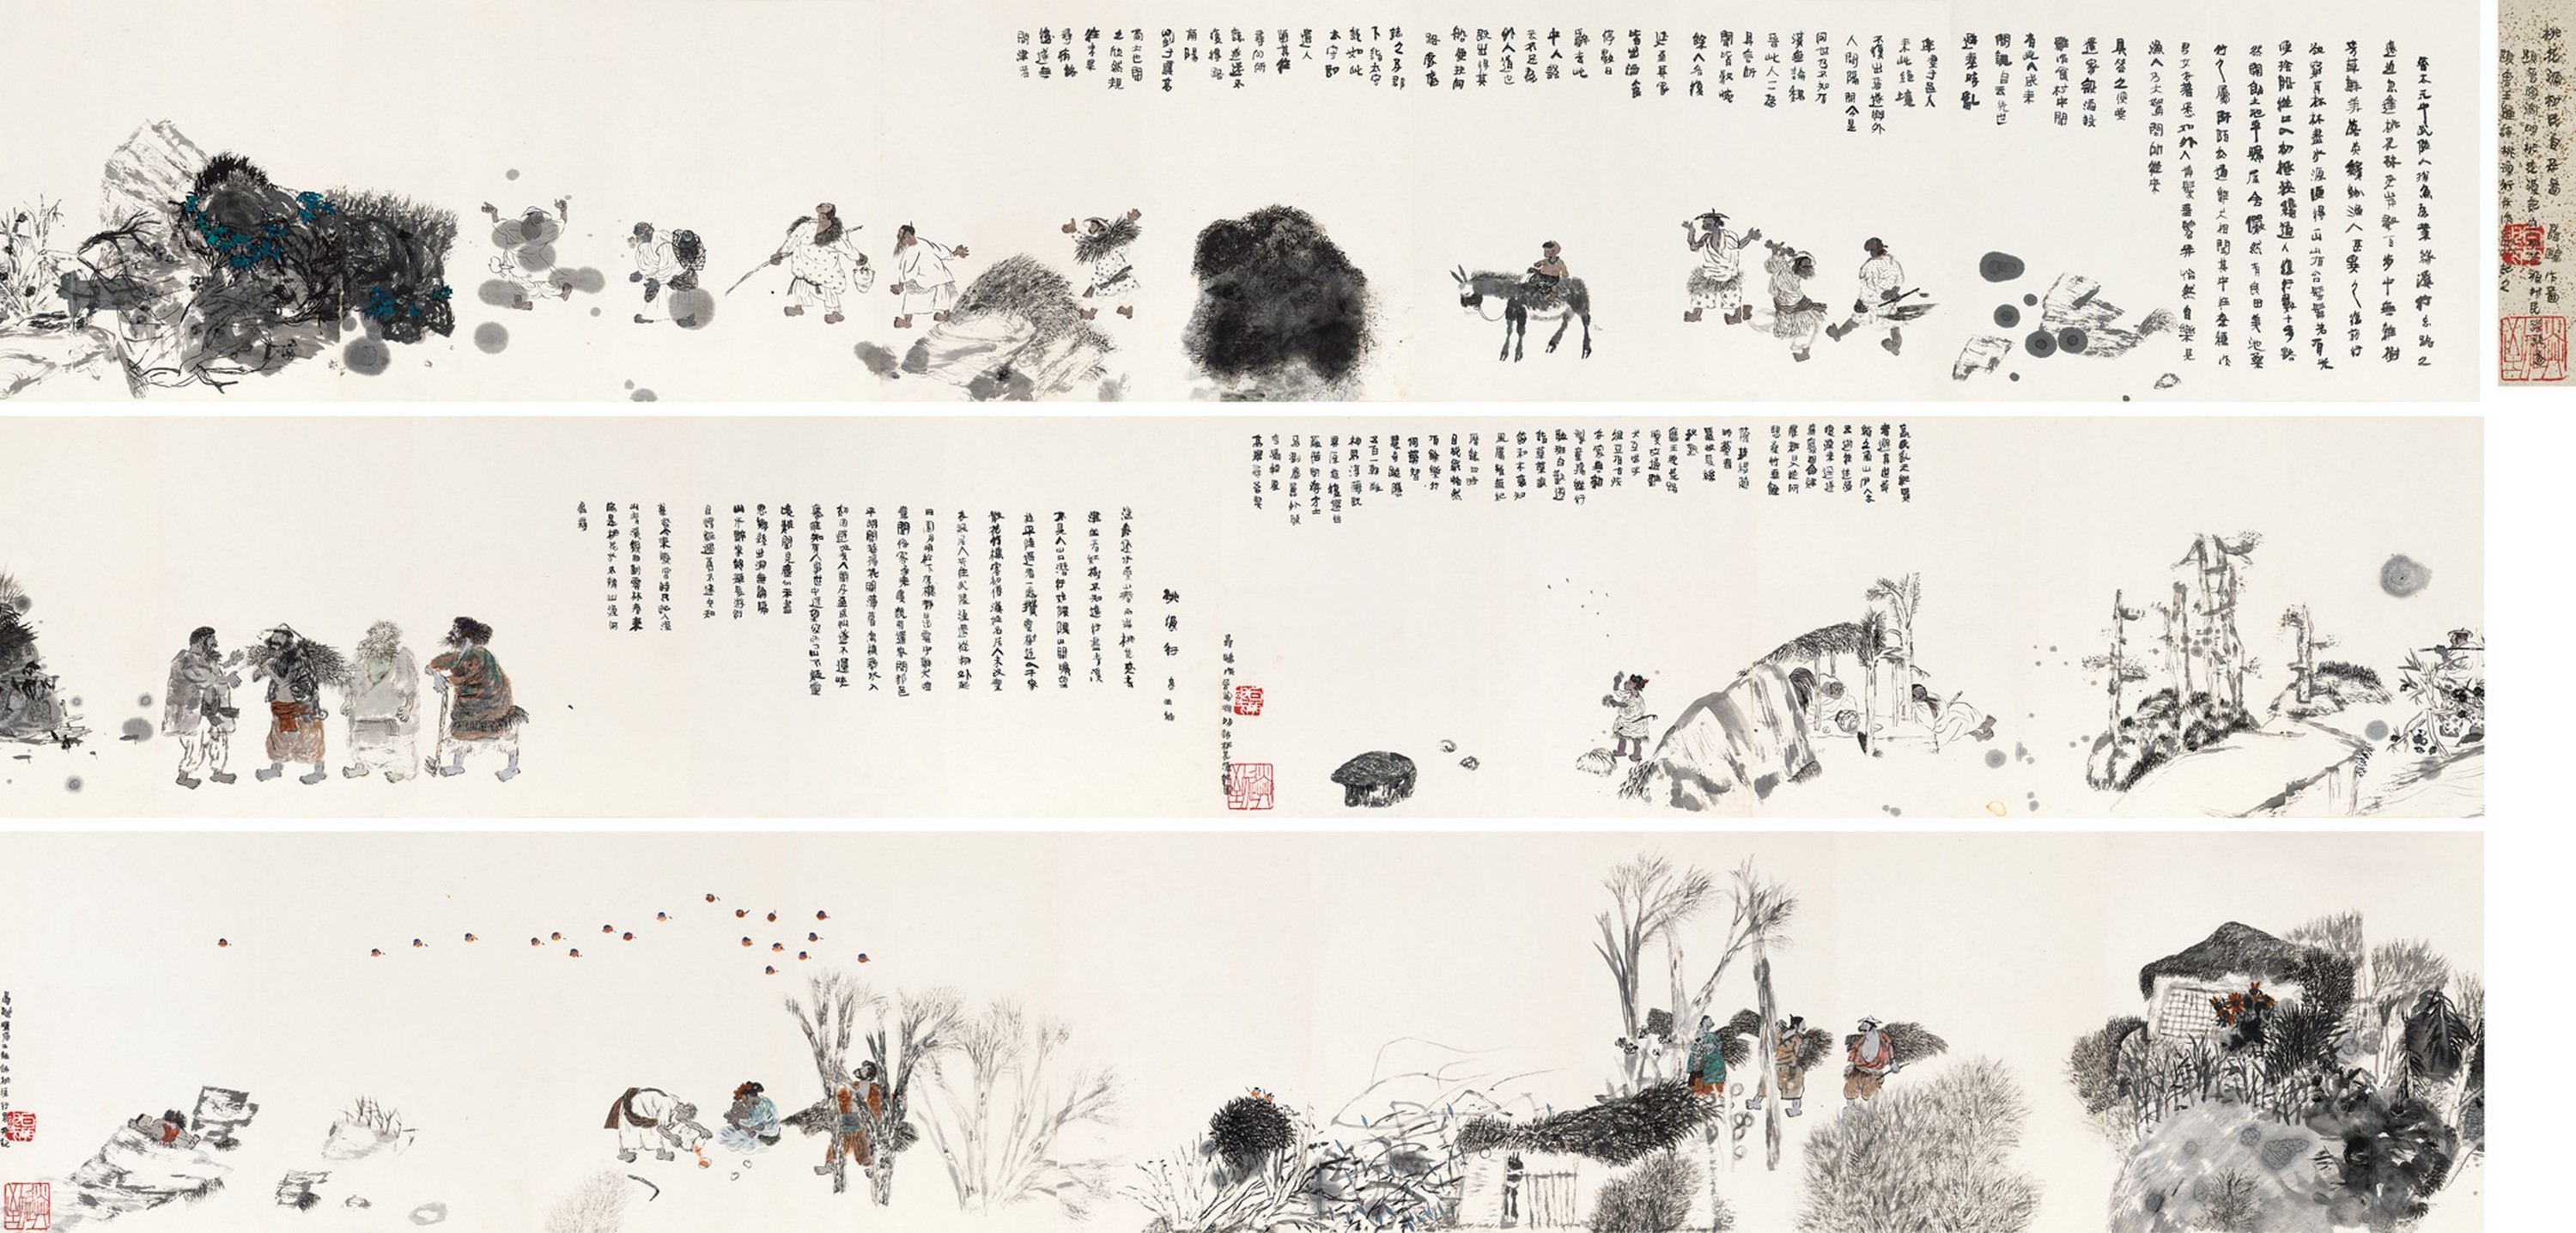 桃花源村民自在圖
晉太元中武陵人捕魚為業緣溪行忘路之
遠近忽逢桃花林夾岸數百步中無雜樹
芳草鮮美落英繽紛漁人甚異之復前行
欲窮其林林盡水源便得一山山有小口髣髴若有光
便捨船從口入初極狹纔通人復行數十步豁
然開朗土地平曠屋舍儼然有良田美池桑
竹之屬阡陌交通雞犬相聞其中往來種作
男女衣著悉如外人黃髮垂髫並怡然自樂見
漁人乃大驚問所從來
具答之便要
還家設酒殺
雞作食村中聞
有此人咸來
問訊自云先世
避秦時亂
率妻子邑人
來此絕境
不復出焉遂與外
人間隔問今是
何世乃不知有
漢無論魏
晉此人一一為
具言所
聞皆歎惋
餘人各復
延至其家
皆出酒食
停數日
辭去此
中人語
云不足為
外人道也
既出得其
船便扶向
路處處
誌之及郡
下詣太守
說如此
太守即
遣人
隨其往
尋向所
誌遂迷不
復得路
南陽
劉子驥高
尚士也聞
之欣然規
往未果
尋病終
後遂無
問津者
嬴氏亂天紀賢
者避其世黃
綺之商山伊人亦
云逝往跡浸
復湮來逕遂
蕪廢相命肆
農耕日入從所
憩桑竹垂餘
蔭菽稷隨
時藝春
蠶收長絲
秋熟
靡王稅荒路
曖交通雞
犬互鳴吠
俎豆猶古法
衣裳無新
製童孺縱行
歌斑白歡游
詣草榮識
節和木衰知
風厲雖無紀
曆誌四時
自成歲怡然
有餘樂于
何勞智
慧奇蹤隱
五百一朝敞
神界淳薄既
異源旋復還幽
蔽借問游方士
焉測塵囂外願
言躡輕風
高舉尋吾契
桃源行 唐 王維
漁舟逐水愛山春兩岸桃花夾去
津坐看紅樹不知遠行盡青溪
不見人山口潛行始隈隩山開曠望
旋平陸遙看一處攢雲樹近入千家
散花竹樵客初傳漢姓名居人未改秦
衣服居人共住武陵源還從物外起
田園月明松下房櫳靜日出雲中雞犬喧
驚聞俗客爭來集競引還家問都邑
平明閭巷掃花開薄暮漁樵乘水入
初因避地去人間及至成仙遂不還峽
裏誰知有人事世中遙望空雲山不疑靈
境難聞見塵心未盡
思鄉縣出洞無論隔
山水辭家終擬長游衍
自謂經過舊不迷安知
峰壑今來變當時只記入深
山青溪幾曲到雲林春來
遍是桃花水不辨仙源何
處尋